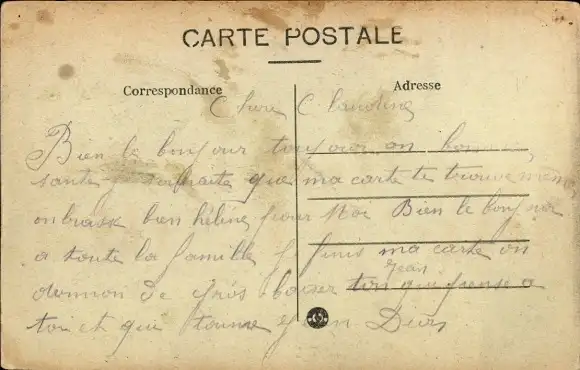 CARTE POSTALE
Correspondance
Adresse
Chere Claudine
Bien le bonjour toujour en bonne
sante je souhaite que ma carte te trouve meme
onbrasse bien hélène pour Moi Bien le bonjour
a toute la famille je finis ma carte en
donnon de gros baiser ton Jean que pense a
toi et qui